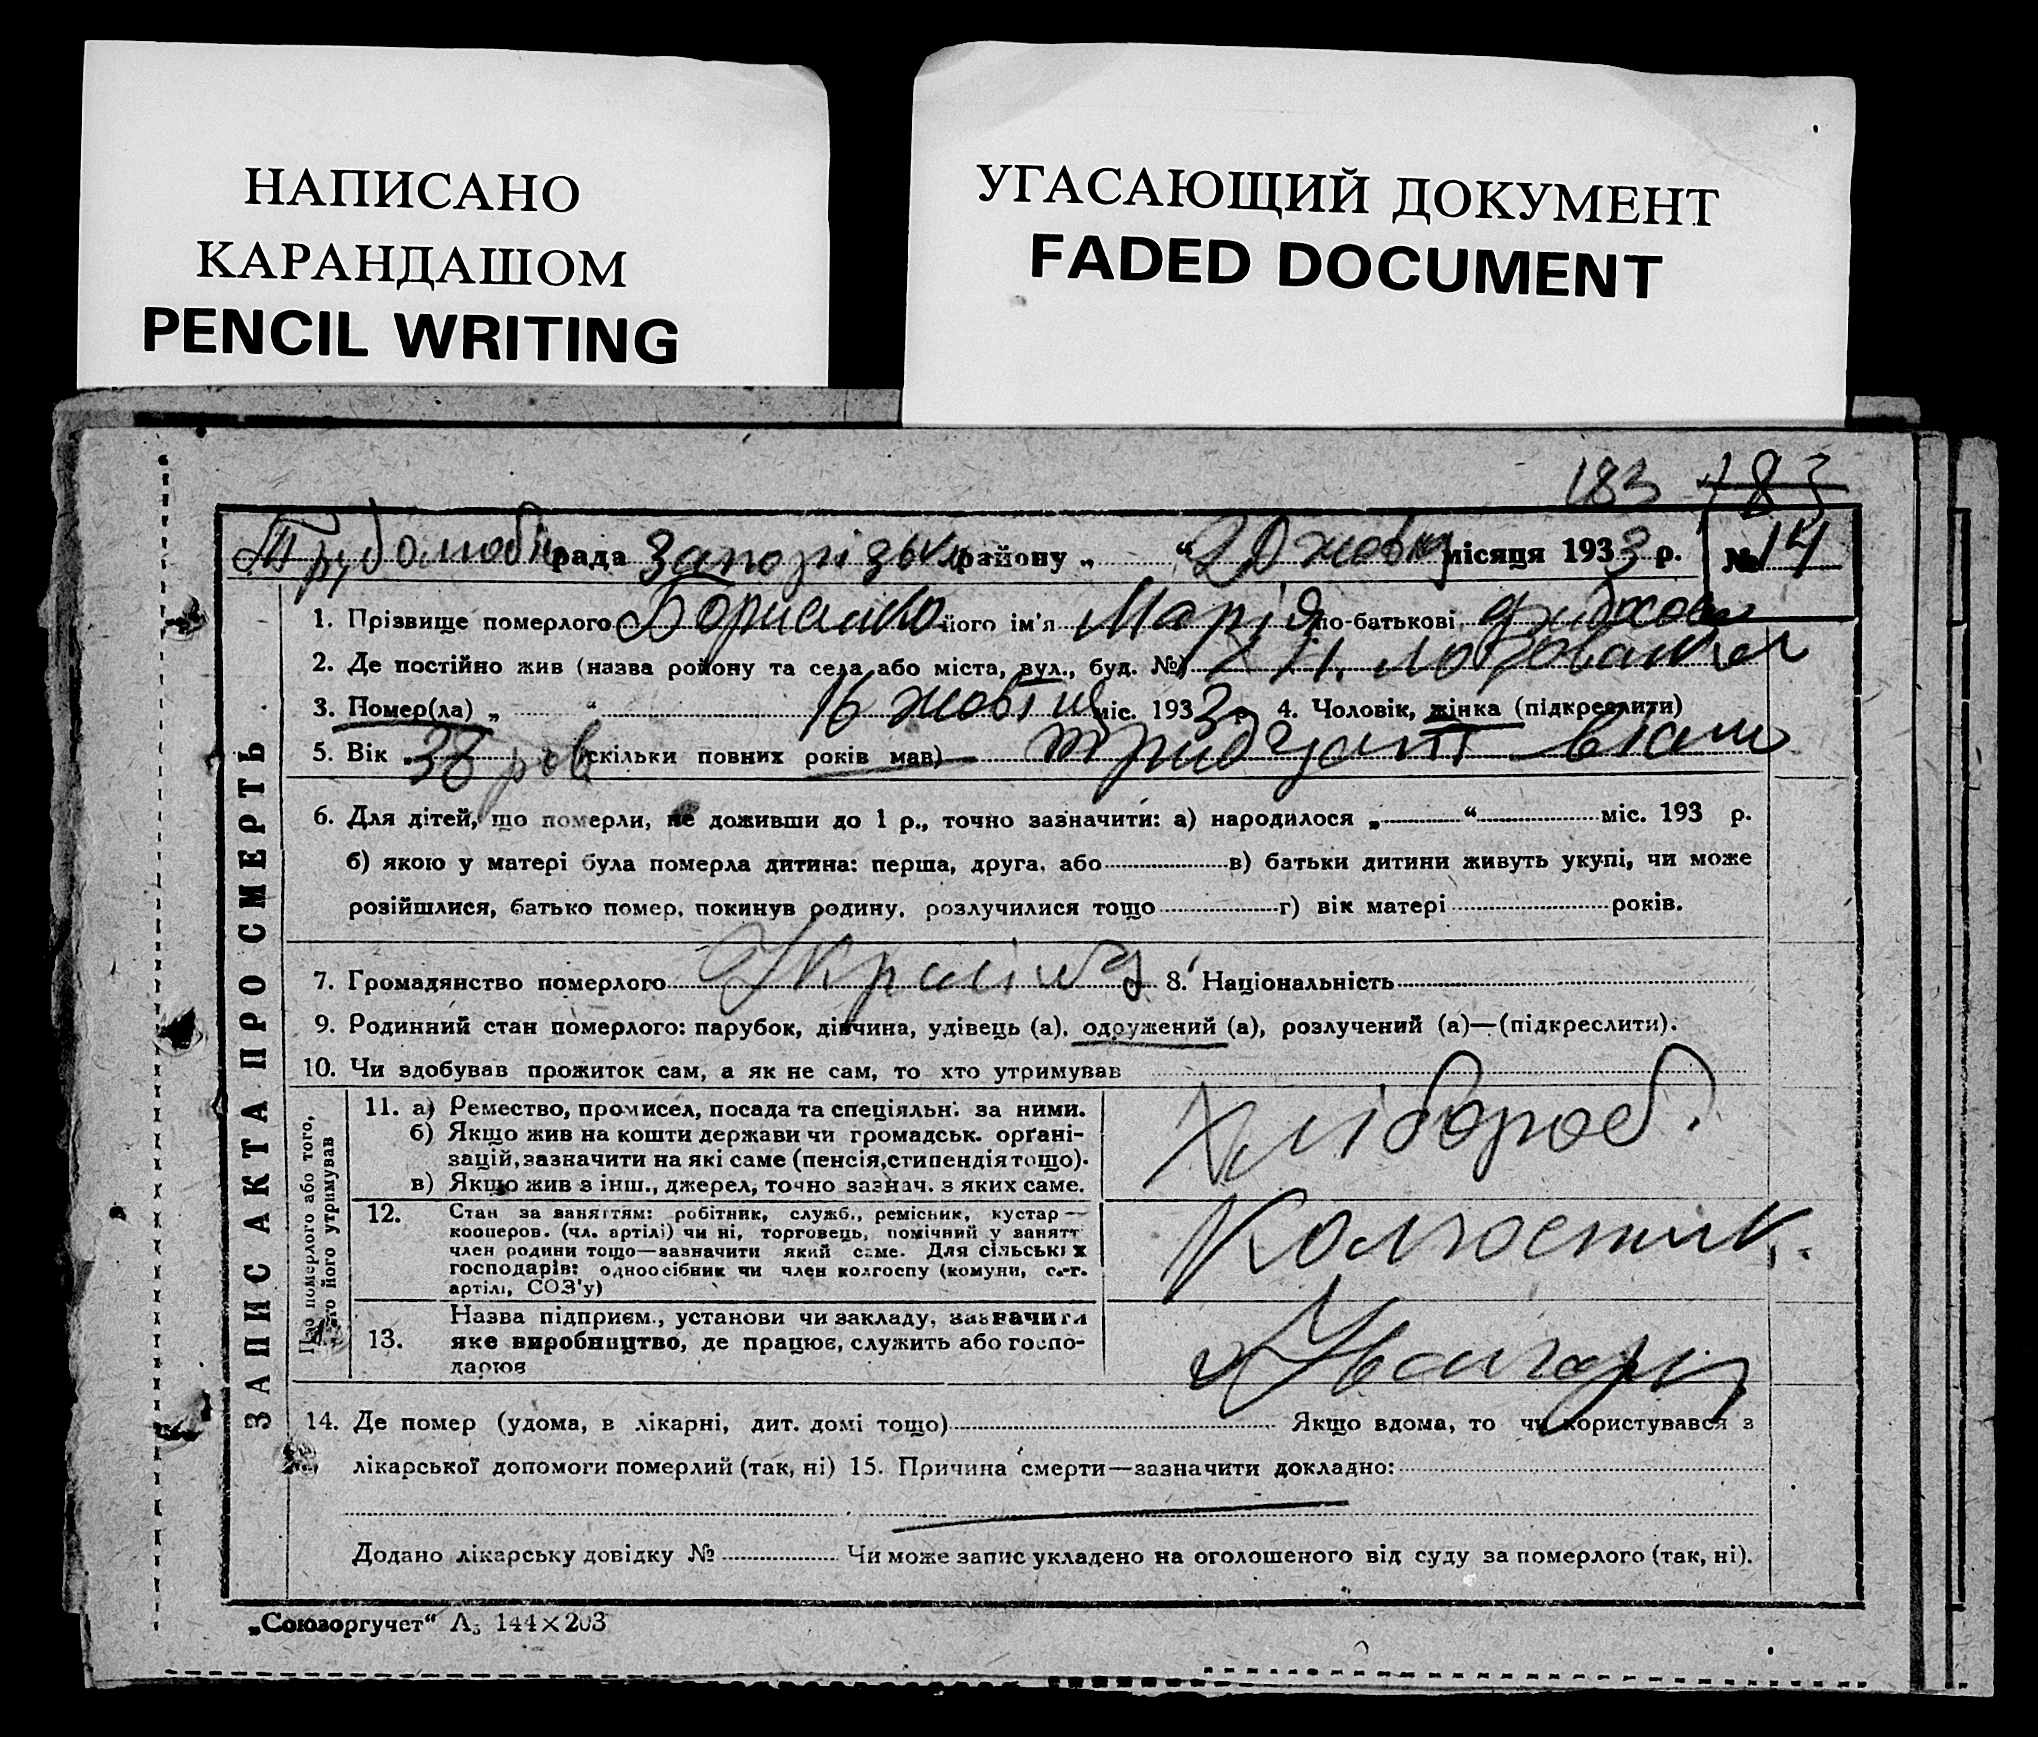 НАПИСАНО
КАРАНДАШОМ
PENCIL WRITING
УГАСАЮЩИЙ ДОКУМЕНТ
FADED DOCUMENT
183 183
рада Запорізьк району „ “ 20 жовтня місяця 1933 р. № 14
ЗАПИС АКТА ПРО СМЕРТЬ
1. Прізвище померлого його ім'я Марія по-батькові
2. Де постійно жив (назва району та села або міста, вул., буд. №)
3. Помер(ла) „ “ 16 жовтня міс. 1933 р. 4. Чоловік, жінка (підкреслити)
5. Вік „ 38 рок (скільки повних років мав) тридцять вісім
6. Для дітей, що померли, не доживши до 1 р., точно зазначити: а) народилося „ “ міс. 193 р.
б) якою у матері була померла дитина: перша, друга, або в) батьки дитини живуть укупі, чи може
розійшлися, батько помер, покинув родину, розлучилися тощо г) вік матері років.
7. Громадянство померлого 8. Національність
9. Родинний стан померлого: парубок, дівчина, удівець (а), одружений (а), розлучений (а)—(підкреслити).
10. Чи здобував прожиток сам, а як не сам, то хто утримував
Про померлого або того,
хто його утримував
11. а) Ремество, промисел, посада та спеціяльн. за ними.
б) Якщо жив на кошти держави чи громадськ. органі-
зацій, зазначити на які саме (пенсія, стипендія тощо).
в) Якщо жив з інш., джерел, точно зазнач. з яких саме.
Хлібороб.
12. Стан за заняттям: робітник, служб., ремісник, кустар—
кооперов. (чл. артілі) чи ні, торговець, помічний у занятт
член родини тощо—зазначити який саме. Для сільських
господарів: одноосібник чи член колгоспу (комуни, с.-г.
артілі, СОЗ'у)
Колгоспник.
13. Назва підприєм., установи чи закладу, зазначити
яке виробництво, де працює, служить або госпо-
дарює
14. Де помер (удома, в лікарні, дит. домі тощо) Якщо вдома, то чи користувався з
лікарської допомоги померлий (так, ні) 15. Причина смерти—зазначити докладно:
Додано лікарську довідку № Чи може запис укладено на оголошеного від суду за померлого (так, ні).
„Союзоргучет“ А5 144×203